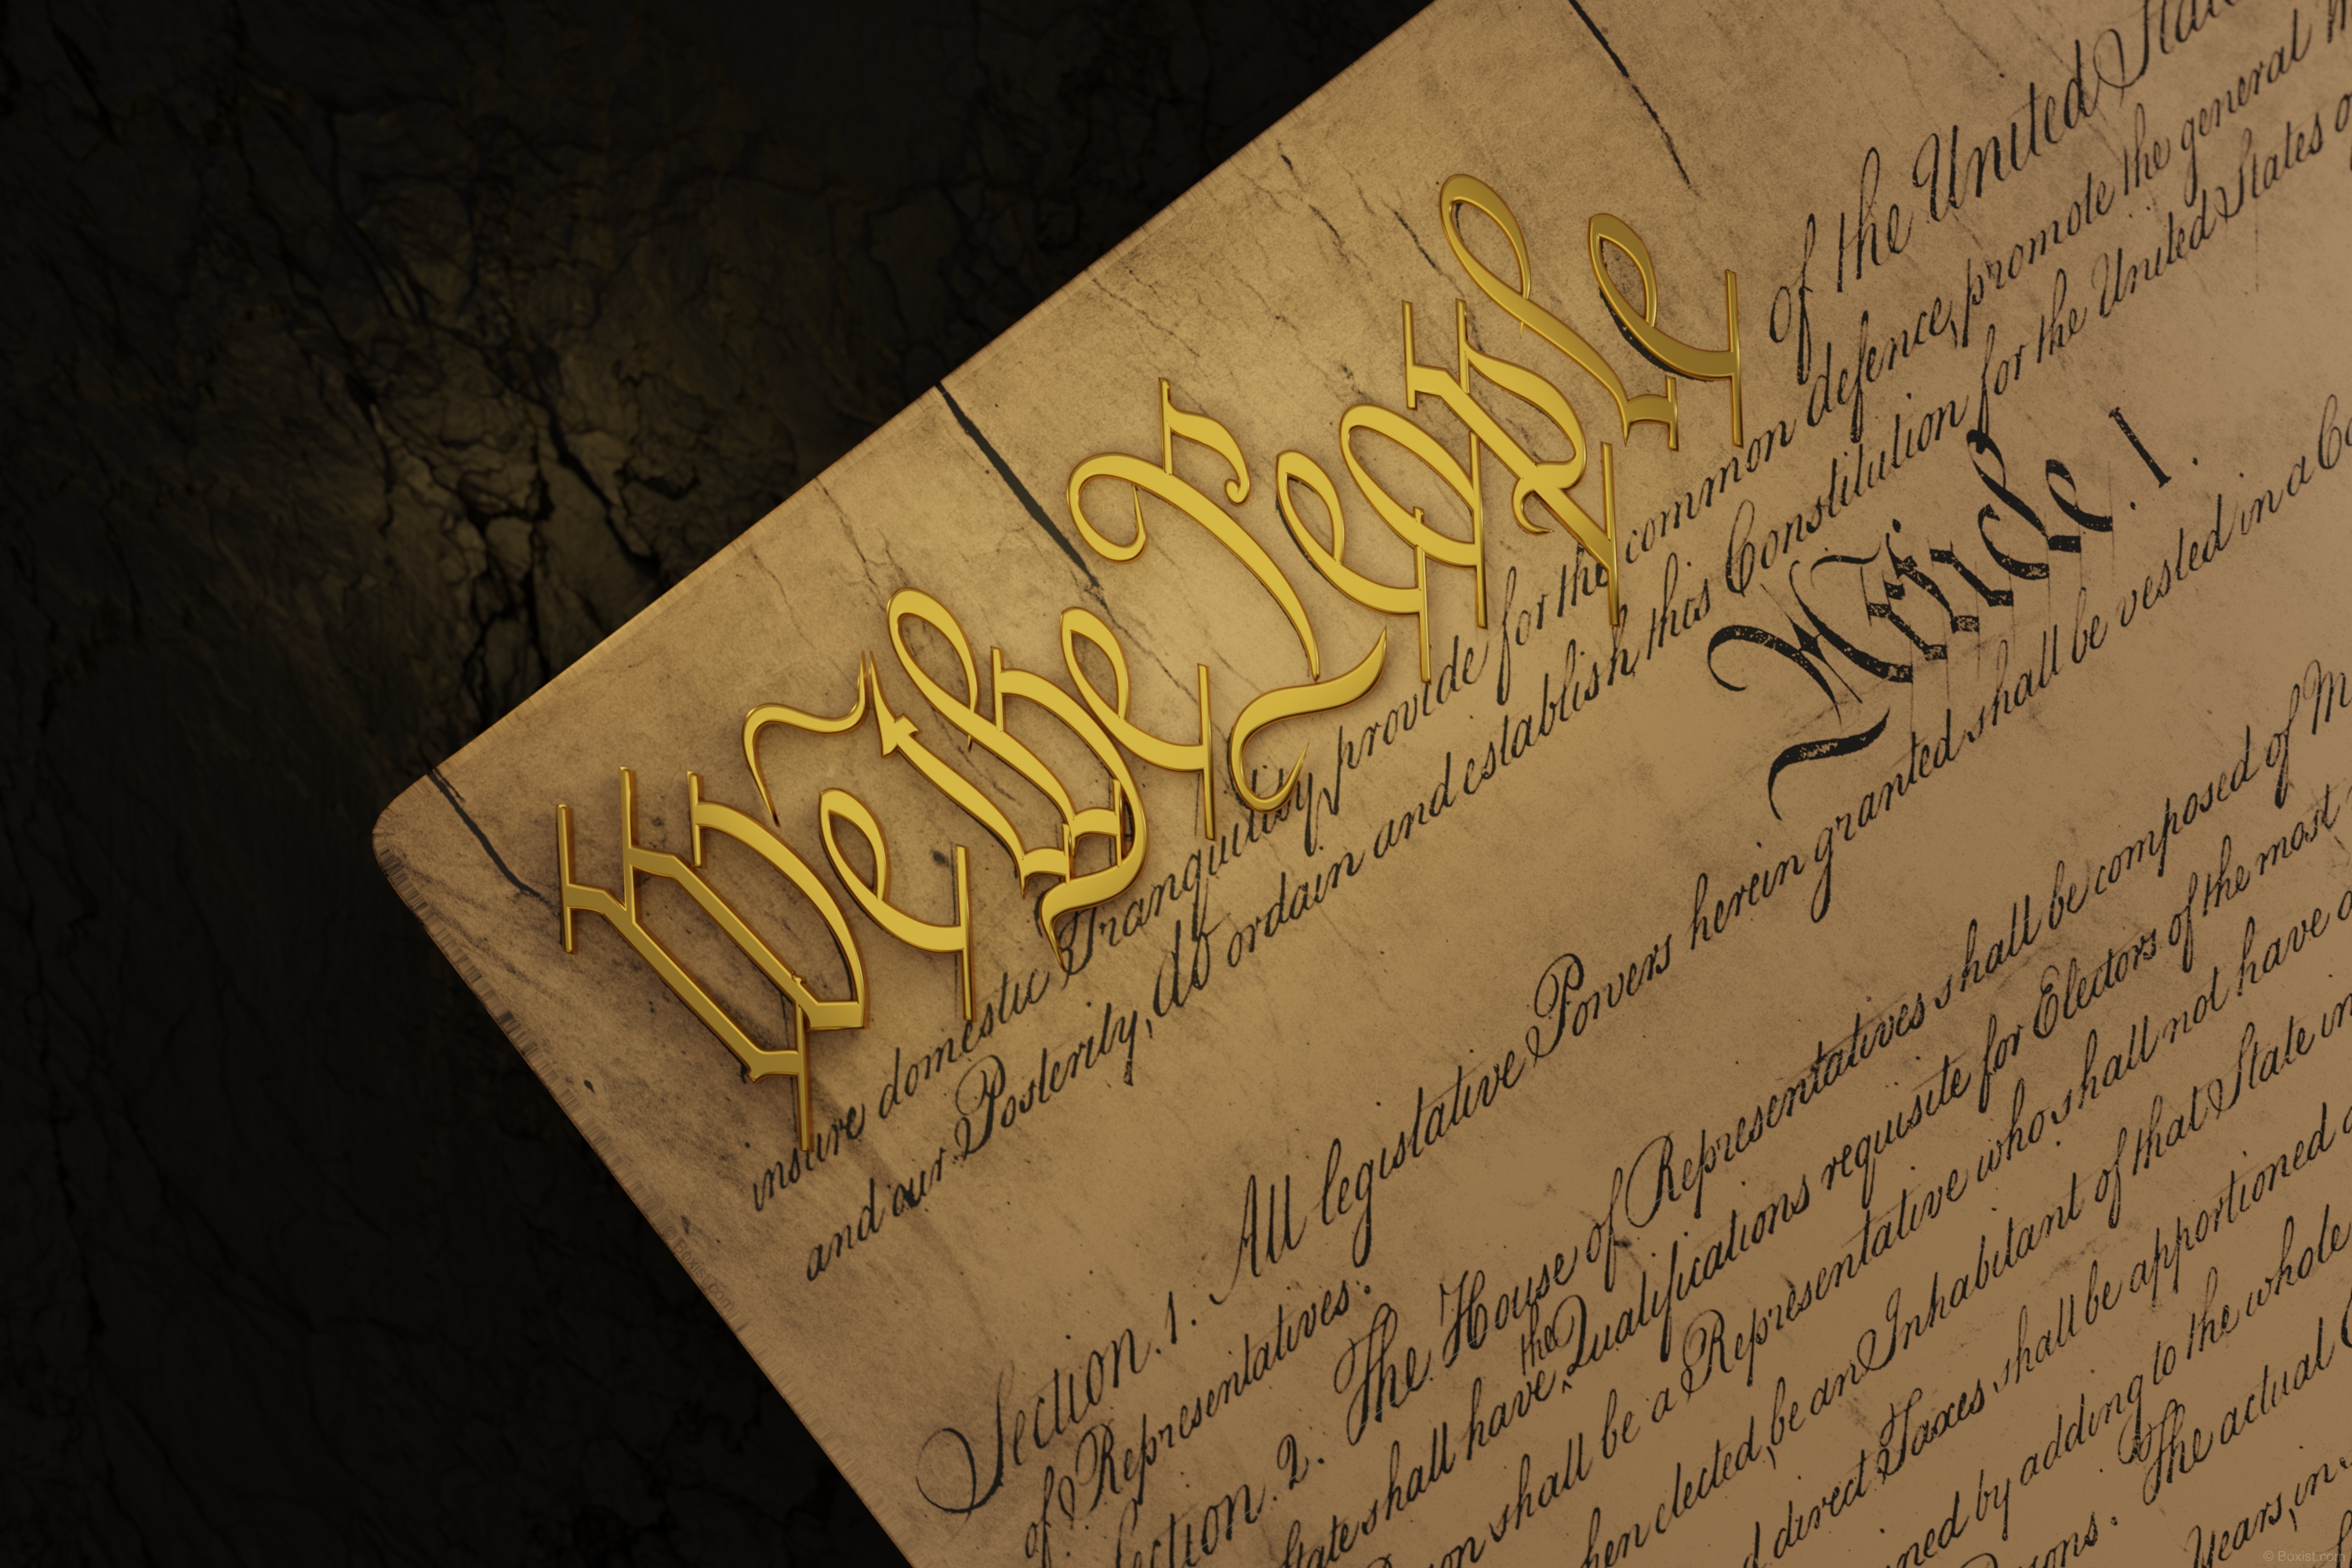 We the People of the United Stat
insure domestic Tranquility, provide for the common defence, promote the general
and our Posterity, do ordain and establish this Constitution for the United States o
Article. I.
Section. 1. All legislative Powers herein granted shall be vested in a Co
of Representatives.
ection. 2. The House of Representatives shall be composed of M
tate shall have the Qualifications requisite for Electors of the most
son shall be a Representative who shall not have a
hen elected, be an Inhabitant of that State in
d direct Taxes shall be apportioned a
ned by adding to the whole
sons. The actual
Years, in
Boxist.com
© Boxist.com